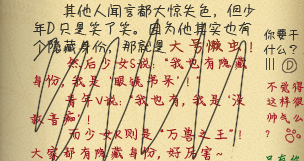 其他人闻言都大惊失色，但少
年D只是笑了笑。因为他其实也有
个隐藏身份，那就是大号懒虫！
然后少女S说："我也有隐藏
身份，我是'眼镜书呆'！"
青年V说："我也有，我是'没
救音痴'！
而少女R则是"万兽之王"！
大家都有隐藏身份，好厉害~
你要干
什么？
||| D
不觉得
这样很
帅气么
？